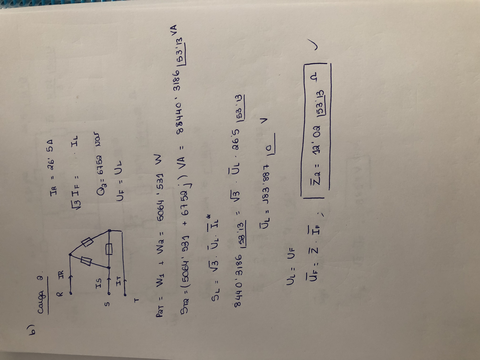 b)
Carga 2
R
IR
S
IS
T
IT
IR = 26'5A
√3 IF = IL
Q2 = 6752 var
UF = UL
PTOT = W1 + W2 = 5064'531 W
ST2 = (5064'531 + 6752j) VA = 88440'3186 |53'13 VA
SL = √3 · ŪL · ĪL*
8440'3186 |53'13 = √3 ŪL · 26'5 |53'13
ŪL = 183'887 |0 V
UL = UF
ŪF = Z̄ · ĪF ; Z̄2 = 12'02 |53'13 Ω ✓